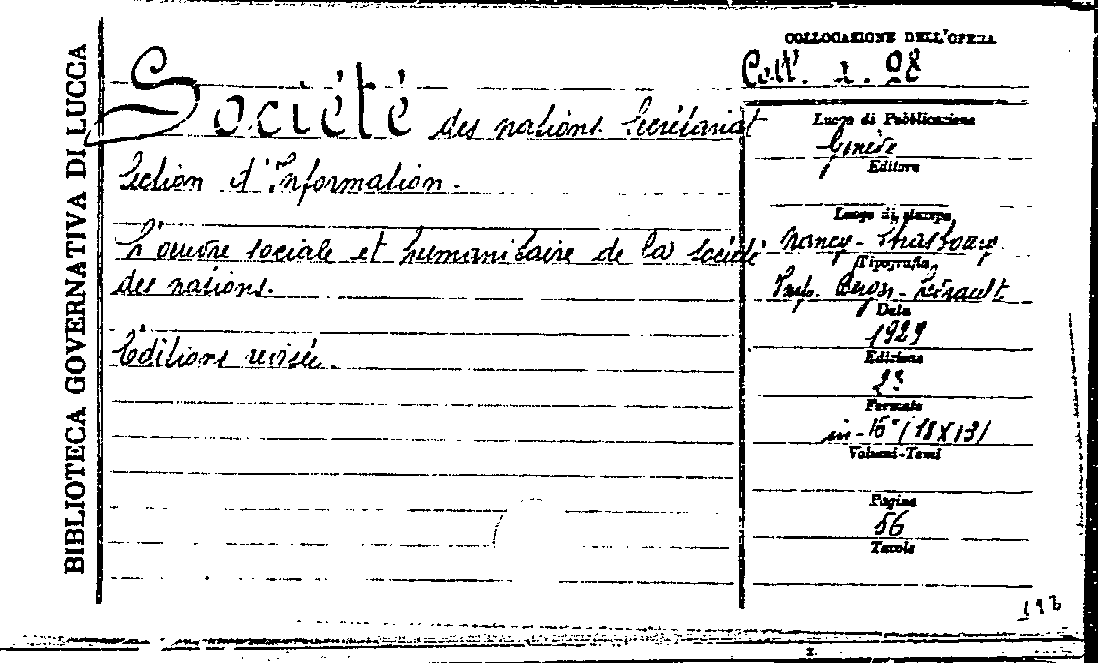 BIBLIOTECA GOVERNATIVA DI LUCCA
Société des nations. Secrétariat
Section d'Information.
L'œuvre sociale et humanitaire de la Société
des nations.
Editions revisée.
COLLOCAZIONE DELL'OPERA
Coll. 1. 98
Luogo di Pubblicazione
Genève
Editore
Luogo di stampa
Nancy-Strasbourg
Tipografia
Imp. Berger-Levrault
Data
1929
Edizione
2ª
Formato
in-16° (18X13)
Volumi-Tomi
Pagine
56
Tavole